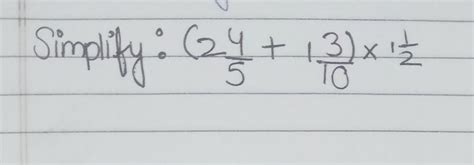 Simplify: (2 4/5 + 1 3/10) × 1 1/2